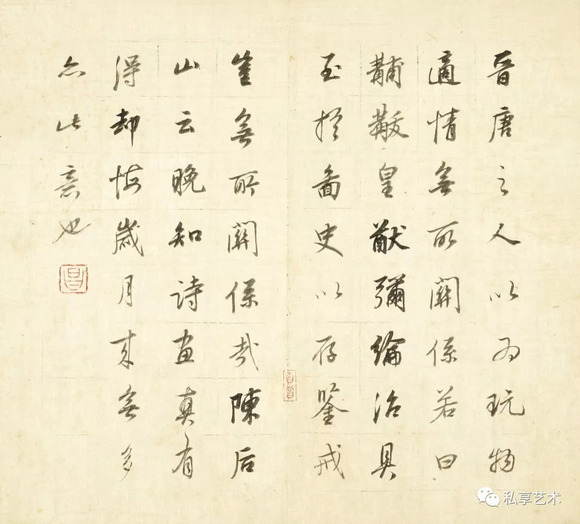 晉唐之人以為玩物
適情無所關係若曰
黼黻皇猷彌綸治具
至於圖史以存鑒戒
豈無所關係哉陳后
山云晚知詩畫真有
得却悔歲月來無多
亦此意也
昌
私享艺术